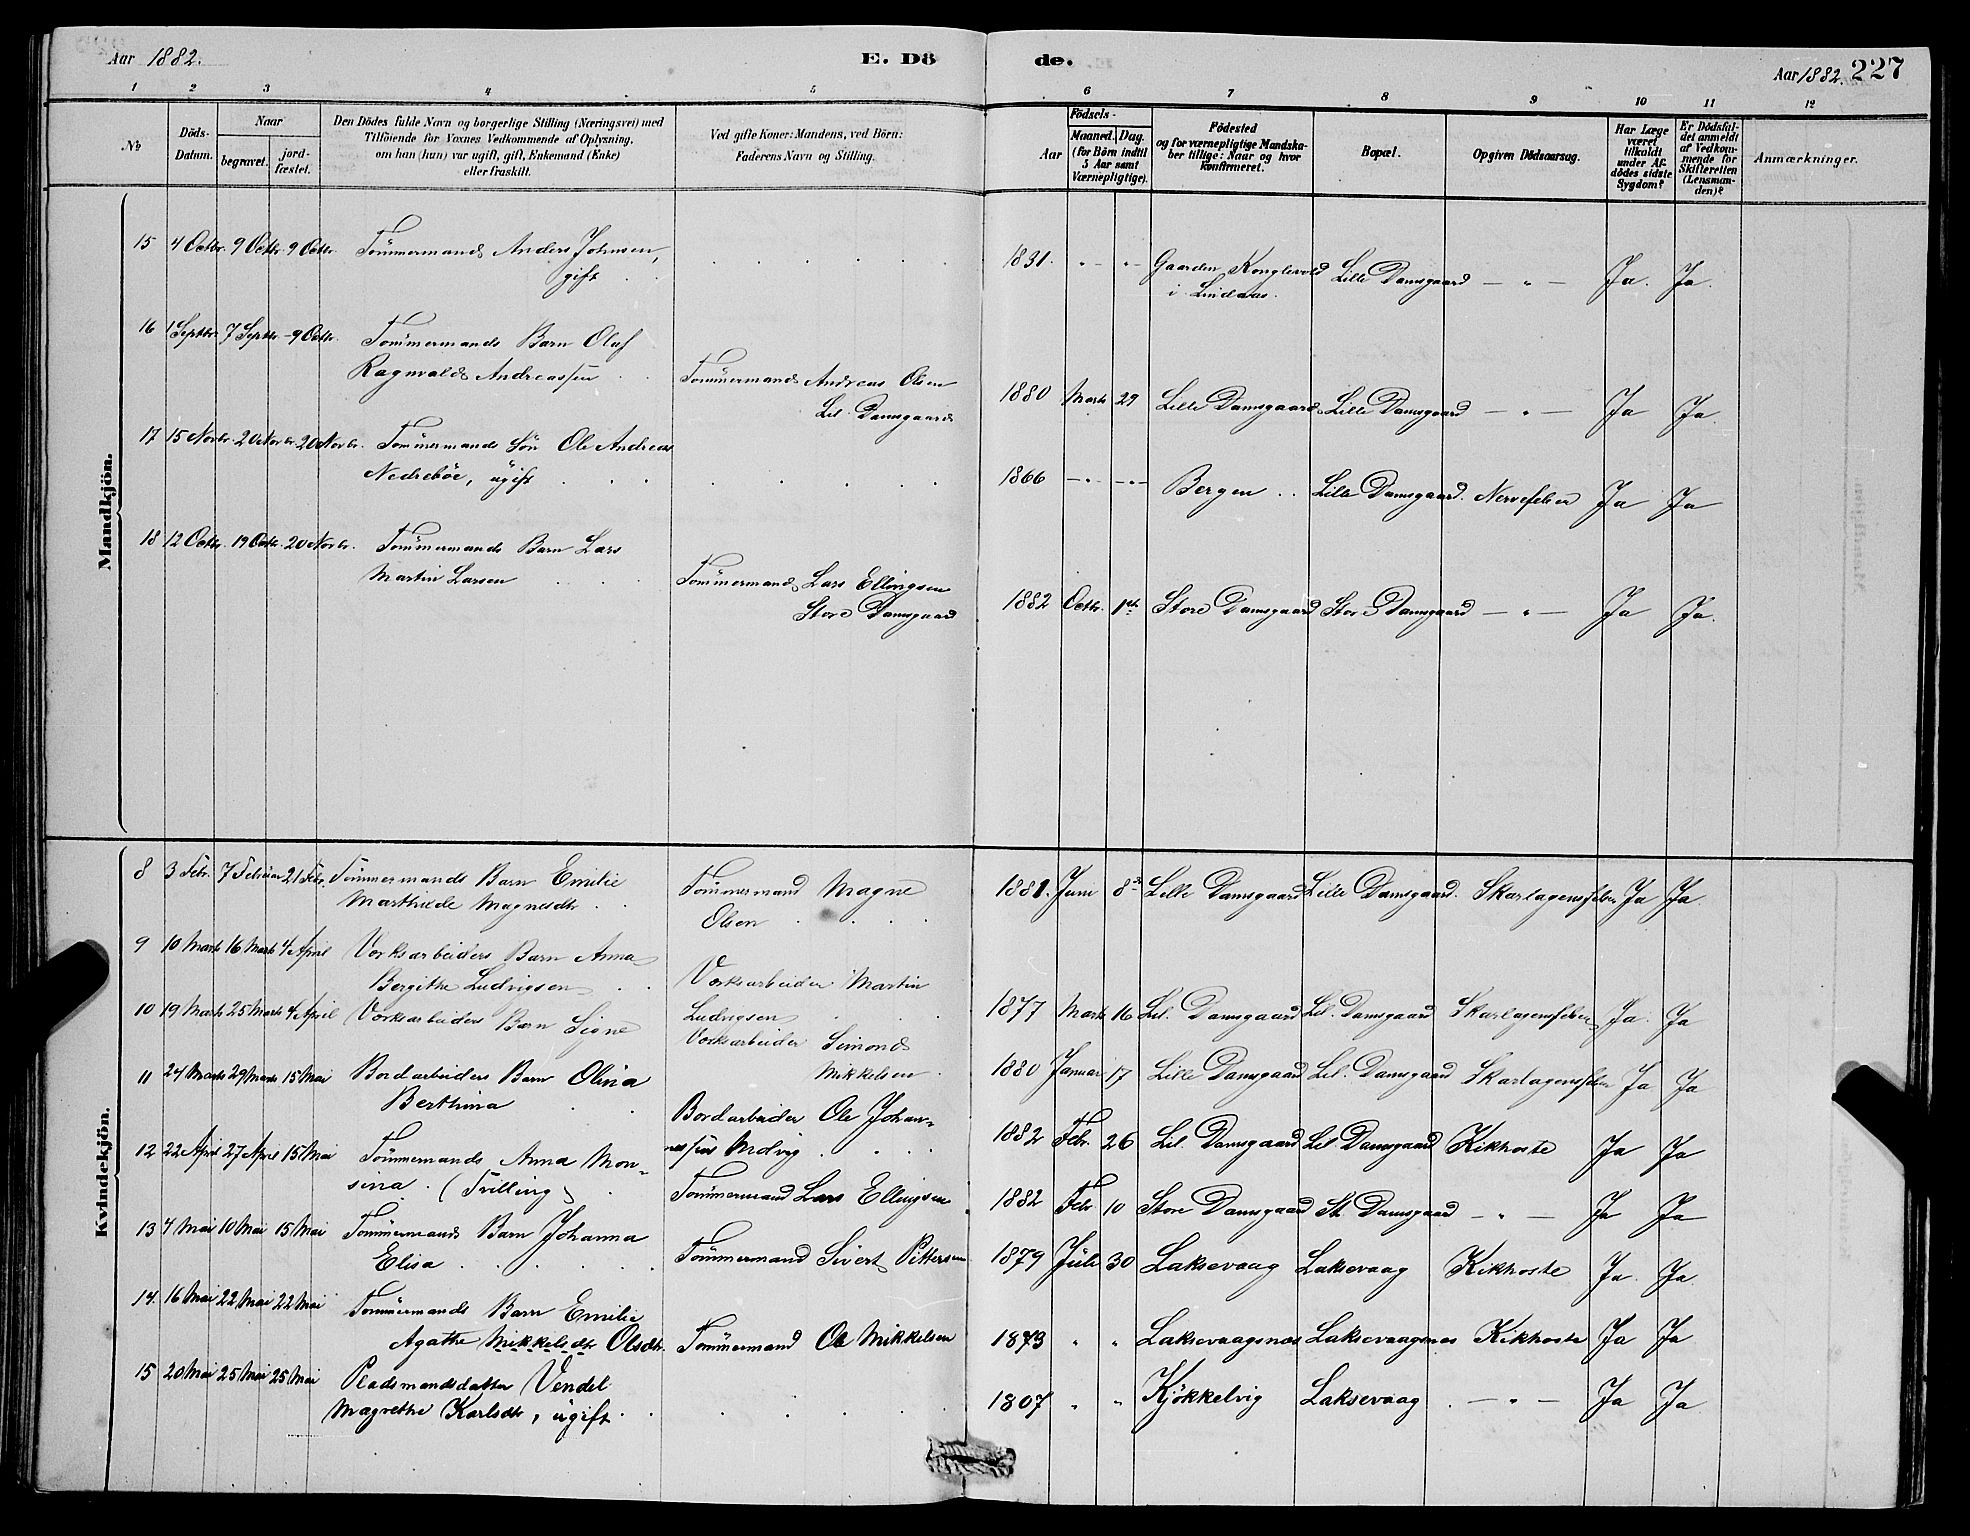 Aar 1882.
E. Dö
de.
Aar 1882. 227
1 2 3 4 5 6 7 8 9 10 11 12
№
Döds-
Datum.
Naar
begravet.
jord-
fæstet.
Den Dödes fulde Navn og borgerlige Stilling (Næringsvei) med
Tilföiende for Voxnes Vedkommende af Oplysning,
om han (hun) var ugift, gift, Enkemand (Enke)
eller fraskilt.
Ved gifte Koner: Mandens, ved Börn:
Faderens Navn og Stilling.
Födsels-
Aar
Maaned. Dag.
(for Börn indtil
5 Aar samt
Værnepligtige).
Födested
og for værnepligtige Mandska-
ber tillige: Naar og hvor
konfirmeret.
Bopæl.
Opgiven Dödsaarsag.
Har Læge
været
tilkaldt
under Af-
dödes sidste
Sygdom?
Er Dödsfal-
det anmeldt
af Vedkom-
mende for
Skifteretten
(Lensman-
den)?
Anmærkninger.
Mandkjön.
15 4 Octbr. 9 Octbr. 9 Octbr. Tømmermand Anders Johnsen,
gift
1831. " " Gaarden Konglevold
i Lindaas. Lille Damsgaard — " — Ja. Ja.
16 1 Septbr. 7 Septbr. 9 Octbr. Tømmermands Barn Olaf
Ragnvald Andreassen
Tømmermand Andreas Olsen
Lil. Damsgaard
1880 Marts 29 Lille Damsgaard Lille Damsgaard — " — Ja Ja.
17 15 Novbr. 20 Novbr. 20 Novbr. Tømmermands Søn Ole Andreas
Nedrebøe, ugift
1866 — " — Bergen Lille Damsgaard. Nervefeber Ja Ja
18 12 Octbr. 19 Octbr. 20 Novbr. Tømmermands Barn Lars
Martin Larsen
Tømmermand Lars Ellingsen
Store Damsgaard
1882 Octbr. 1ste Store Damsgaard Store Damsgaard — " — Ja Ja.
Kvindekjön.
8 3 Febr. 7 Februar 21 Febr. Tømmermands Barn Emilie
Marthilde Magnesdtr
Tømmermand Magne
Olsen
1881. Juni 8de Lille Damsgaard Lille Damsgaard. Skarlagensfeber Ja Ja.
9 10 Marts 16 Marts 4 April Værksarbeiders Barn Anna
Bergithe Ludvigsen
Værksarbeider Martin
Ludvigsen
1877 Marts 16 Lil. Damsgaard Lil. Damsgaard Skarlagensfeber Ja. Ja
10 19 Marts 25 Marts 4 April Værksarbeiders Barn Signe
Værksarbeider Simond
Mikkelsen
1880 Januar 17 Lille Damsgaard Lil. Damsgaard Skarlagensfeber Ja Ja
11 24 Marts 29 Marts 15 Mai Bordarbeiders Barn Olina
Berthina
Bordarbeider Ole Johan-
nessen Molvig
1882 Febr. 26 Lil. Damsgaard Lil Damsgaard Kikhoste Ja Ja
12 22 April 27 April 15 Mai Tømmermands Anna Mon-
sina. (Trilling)
Tømmermand Lars Ellingsen
1882 Febr 10 Store Damsgaard St. Damsgaard — " — Ja Ja
13 4 Mai 10 Mai 15 Mai Tømmermands Barn Johanna
Elisa
Tømmermand Sivert Pettersen
1879 Juli 30 Laksevaag Laksevaag Kikhoste Ja. Ja.
14. 16 Mai 22 Mai 22 Mai Tømmermands Barn Emilie
Agathe Mikkelsdtr Olsdtr.
Tømmermand Ole Mikkelsen
1873 " " Laksevaagsnæs Laksevaagsnæs Kikhoste Ja Ja
15 20 Mai 25 Mai 25 Mai Pladsmandsdatter Vendel
Magrethe Karlsdtr, ugift.
1807 " " Kjøkkelvig Laksevaag — " — Ja Ja